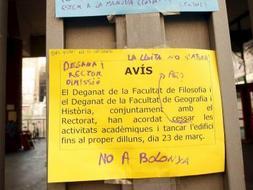 LA LLUITA NO S'ATURA
DEGANA I
RECTOR
DIMISSIÓ
AVÍS
El Deganat de la Facultat de Filosofia i
el Deganat de la Facultat de Geografia i
Història, conjuntament amb el
Rectorat, han acordat cessar les
activitats acadèmiques i tancar l'edifici
fins al proper dilluns, dia 23 de març.
NO A BOLONYA